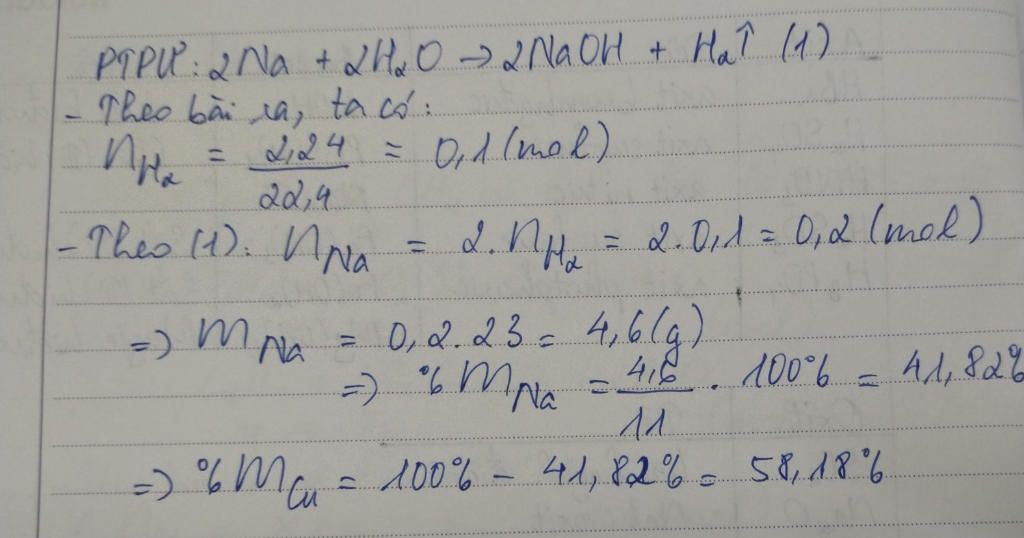 PTPƯ: 2Na + 2H₂O → 2NaOH + H₂↑ (1)
- Theo bài ra, ta có:
n_H₂ = 2,24/22,4 = 0,1 (mol)
- Theo (1): n_Na = 2. n_H₂ = 2.0,1 = 0,2 (mol)
=> m_Na = 0,2.23 = 4,6 (g)
=> %m_Na = 4,6/11 . 100% = 41,82%
=> %m_Cu = 100% - 41,82% = 58,18%